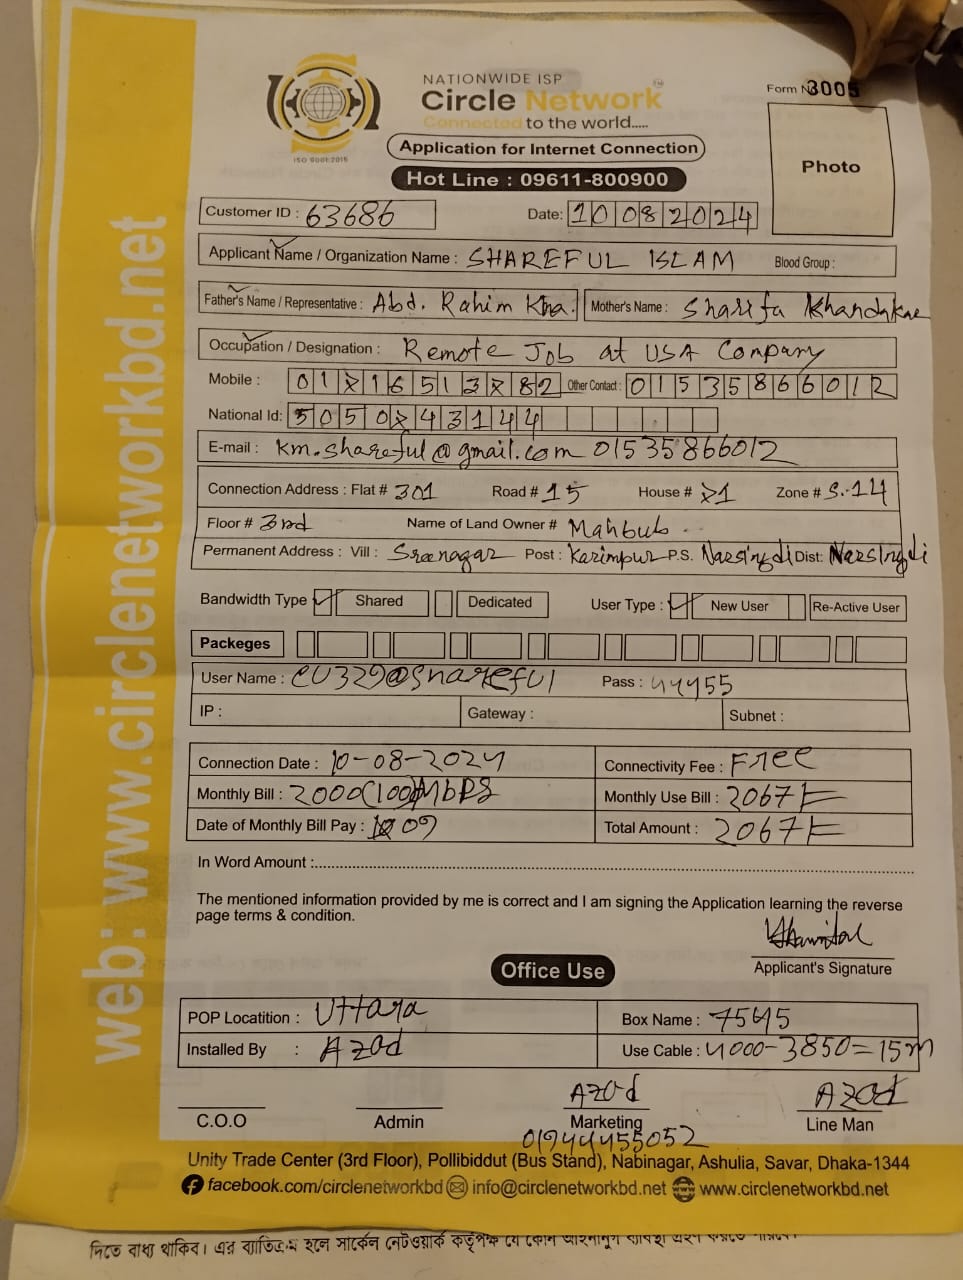 NATIONWIDE ISP
Circle Network™
Connected to the world.....
ISO 9001:2015
Form N 3005
Photo
Application for Internet Connection
Hot Line : 09611-800900
Customer ID : 63686 Date: 10 08 2024
Applicant Name / Organization Name : SHAREFUL ISLAM Blood Group :
Father's Name / Representative : Abd. Rahim Kha. Mother's Name : Sharifa Khandakar
Occupation / Designation : Remote Job at USA Company
Mobile : 01716513782 Other Contact : 01535866012
National Id: 5050743144
E-mail : km.shareful@gmail.com 01535866012
Connection Address : Flat # 301 Road # 15 House # 71 Zone # S-14
Floor # 3rd Name of Land Owner # Mahbub
Permanent Address : Vill : Sreenagar Post : Karimpur P.S. Narsingdi Dist: Narsingdi
Bandwidth Type Shared Dedicated User Type : New User Re-Active User
Packeges
User Name : CU329@shareful Pass : 44455
IP : Gateway : Subnet :
Connection Date : 10-08-2024 Connectivity Fee : Free
Monthly Bill : 2000(100)Mbps Monthly Use Bill : 2067/=
Date of Monthly Bill Pay : 09 Total Amount : 2067/=
In Word Amount :
The mentioned information provided by me is correct and I am signing the Application learning the reverse
page terms & condition.
Applicant's Signature
Office Use
POP Locatition : Uttara Box Name : 7545
Installed By : Azad Use Cable : 4000-3850=15m
Azad Azad
C.O.O Admin Marketing Line Man
01944455052
Unity Trade Center (3rd Floor), Pollibiddut (Bus Stand), Nabinagar, Ashulia, Savar, Dhaka-1344
facebook.com/circlenetworkbd info@circlenetworkbd.net www.circlenetworkbd.net
web: www.circlenetworkbd.net
দিতে বাধ্য থাকিব। এর ব্যতিক্রম হলে সার্কেল নেটওয়ার্ক কর্তৃপক্ষ যে কোন